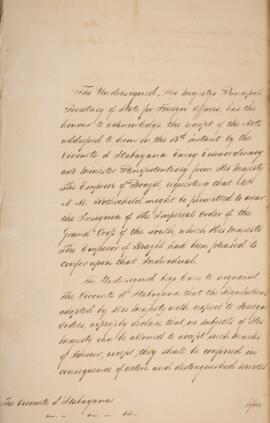 The Undersigned, His Majesty's Principal
Secretary of State for Foreign Affairs, has the
honour to acknowledge the receipt of the Note
addressed to him on the 13th instant by the
Vicomte d'Itabayana Envoy Extraordinary
and Minister Plenipotentiary from His Majesty
The Emperor of Brazil, requesting that Mr.
N. M. Rothschild might be permitted to wear
the Insignia of the Imperial Order of the
Grand Cross of the South, which His Majesty
The Emperor of Brazil had been pleased to
confer upon that Individual.
The Undersigned begs leave to acquaint
the Vicomte d'Itabayana that the Regulations
adopted by His Majesty with respect to Foreign
Orders, expressly declare that, no subjects of His
Majesty can be allowed to accept such marks
of Honour, except, they shall be conferred in
consequence of active and distinguished services
The Vicomte d'Itabayana
upon